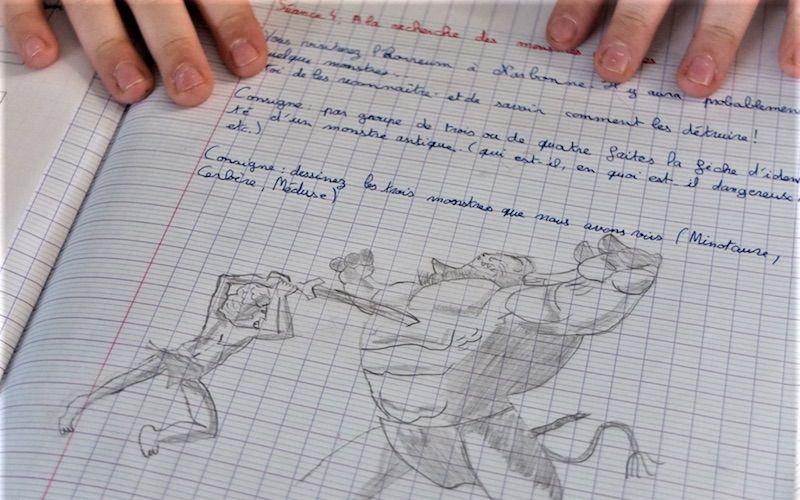 Séance 4. A la recherche des monstres
Vous visitez l'horreum à Narbonne. Il y aura probablement
quelque monstres.
toi de les reconnaître et de savoir comment les détruire!
Consigne: par groupe de trois ou de quatre faites la fiche d'iden
té d'un monstre antique. (qui est-il, en quoi est-il dangereuse,
etc.)
Consigne: dessinez les trois monstres que nous avons vus (Minotaure,
Cerbère, Méduse)